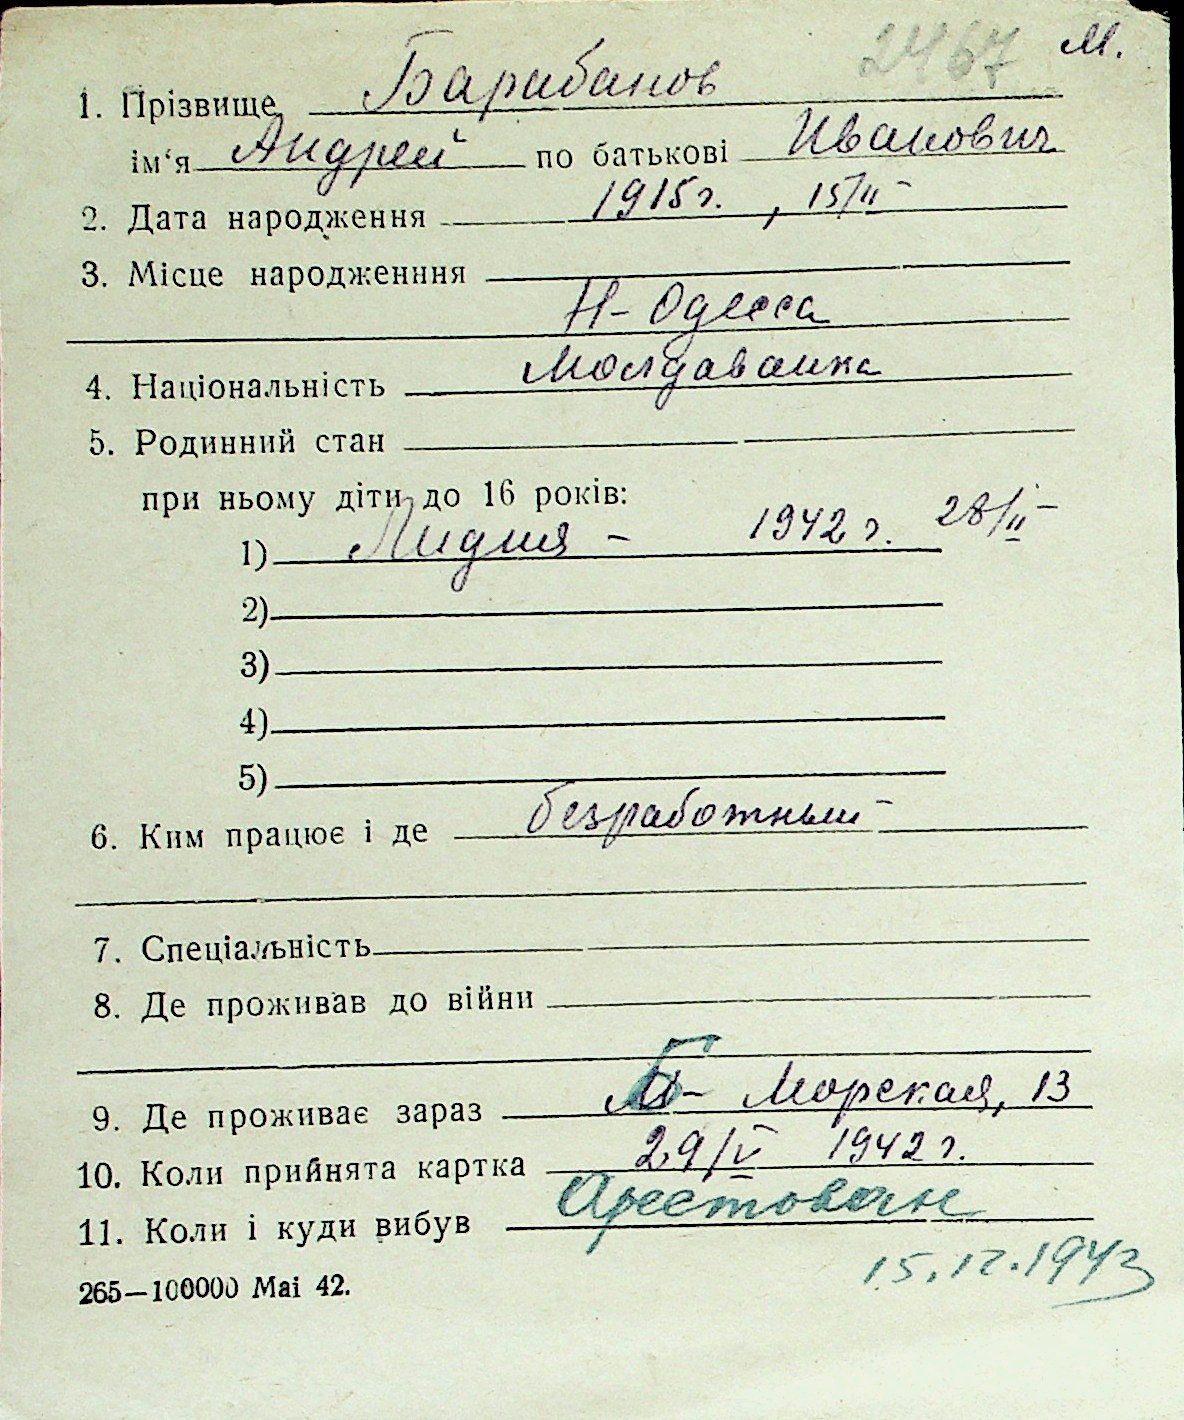 2467 М.
1. Прізвище Барабанов
ім'я Андрей по батькові Иванович
2. Дата народження 1915г., 15/II
3. Місце народженння
Н-Одесса
4. Національність Молдаванка
5. Родинний стан
при ньому діти до 16 років:
1) Лидия - 1942 г. 28/II
2)
3)
4)
5)
6. Ким працює і де безработный
7. Спеціальність
8. Де проживав до війни
9. Де проживає зараз Б- Морская, 13
10. Коли прийнята картка 29/V 1942 г.
11. Коли і куди вибув Арестован
15.12.1943
265—100000 Mai 42.